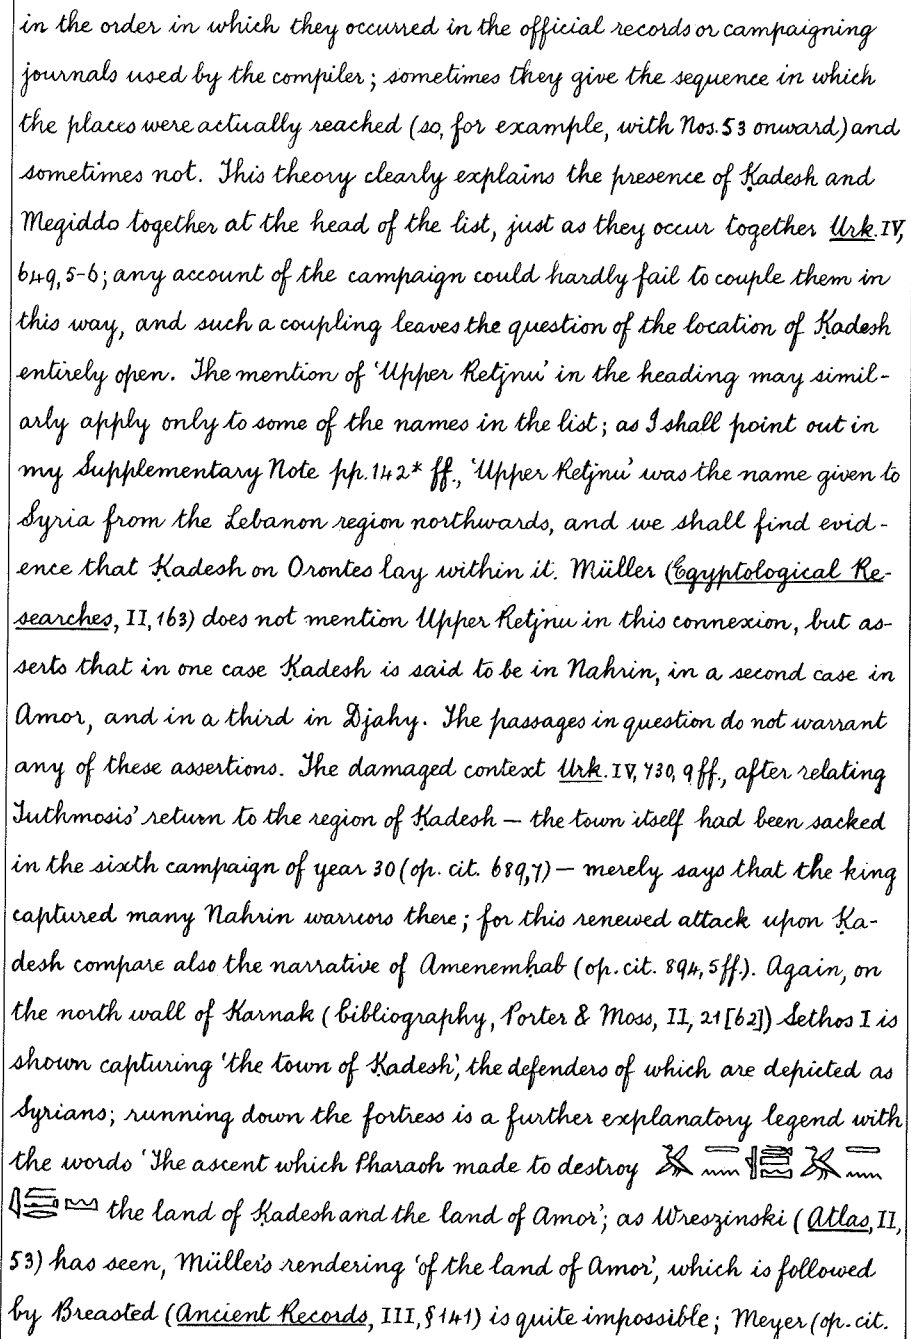 in the order in which they occurred in the official records or campaigning
journals used by the compiler; sometimes they give the sequence in which
the places were actually reached (so, for example, with Nos. 53 onward) and
sometimes not. This theory clearly explains the presence of Ḳadesh and
Megiddo together at the head of the list, just as they occur together Urk. IV,
649, 5-6; any account of the campaign could hardly fail to couple them in
this way, and such a coupling leaves the question of the location of Ḳadesh
entirely open. The mention of 'Upper Retjnu' in the heading may simil-
arly apply only to some of the names in the list; as I shall point out in
my Supplementary Note pp. 142* ff., 'Upper Retjnu' was the name given to
Syria from the Lebanon region northwards, and we shall find evid-
ence that Ḳadesh on Orontes lay within it. Müller (Egyptological Re-
searches, II, 163) does not mention Upper Retjnu in this connexion, but as-
serts that in one case Ḳadesh is said to be in Nahrin, in a second case in
Amor, and in a third in Djahy. The passages in question do not warrant
any of these assertions. The damaged context Urk. IV, 730, 9 ff., after relating
Tuthmosis' return to the region of Ḳadesh – the town itself had been sacked
in the sixth campaign of year 30 (op. cit. 689, 7) – merely says that the king
captured many Nahrin warriors there; for this renewed attack upon Ḳa-
desh compare also the narrative of Amenemḥab (op. cit. 894, 5 ff.). Again, on
the north wall of Karnak (bibliography, Porter & Moss, II, 21 [62]) Sethos I is
shown capturing 'the town of Ḳadesh', the defenders of which are depicted as
Syrians; running down the fortress is a further explanatory legend with
the words 'The ascent which Pharaoh made to destroy
the land of Ḳadesh and the land of Amor'; as Wreszinski (Atlas, II,
53) has seen, Müller's rendering 'of the land of Amor', which is followed
by Breasted (Ancient Records, III, § 141) is quite impossible; Meyer (op. cit.